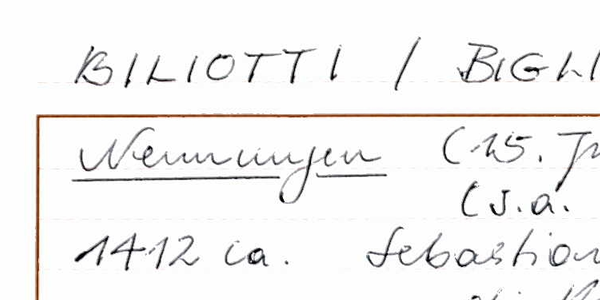 BILIOTTI / BIGLI
Nennungen (15. J
(s.a.
1412 ca. Sebastian